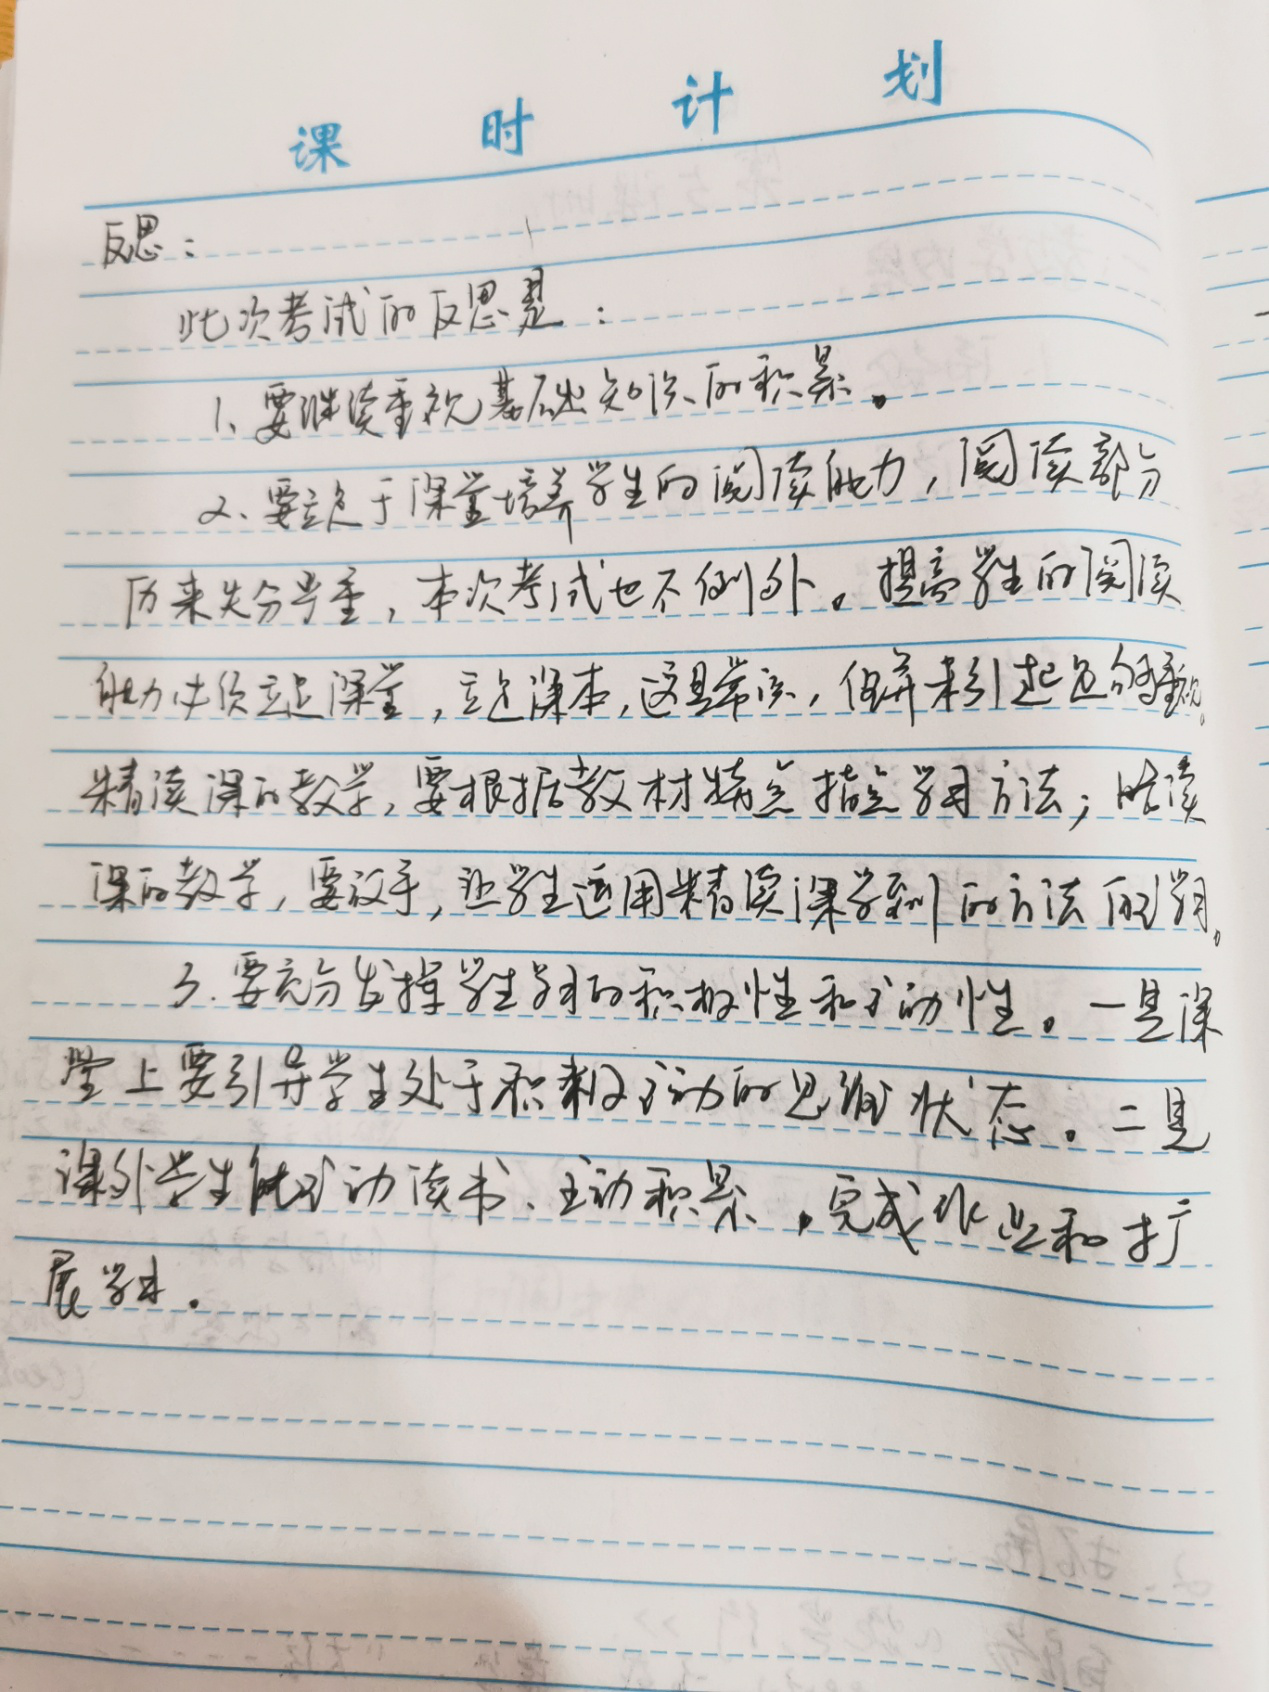 课时计划
反思：
此次考试的反思是：
1、要继续重视基础知识的积累。
2、要立足于课堂培养学生的阅读能力，阅读部分
历来失分号重，本次考试也不例外。提高学生的阅读
能力必须立足课堂，立足课本，这是常识，但并未引起足够重视。
精读课的教学，要根据教材特点指点学习方法；略读
课的教学，要放手，让学生运用精读课学到的方法自学。
3.要充分发挥学生学习的积极性和主动性。一是课
堂上要引导学生处于积极主动的思维状态。二是
课外学生能主动读书、主动积累。完成作业和扩
展学习。